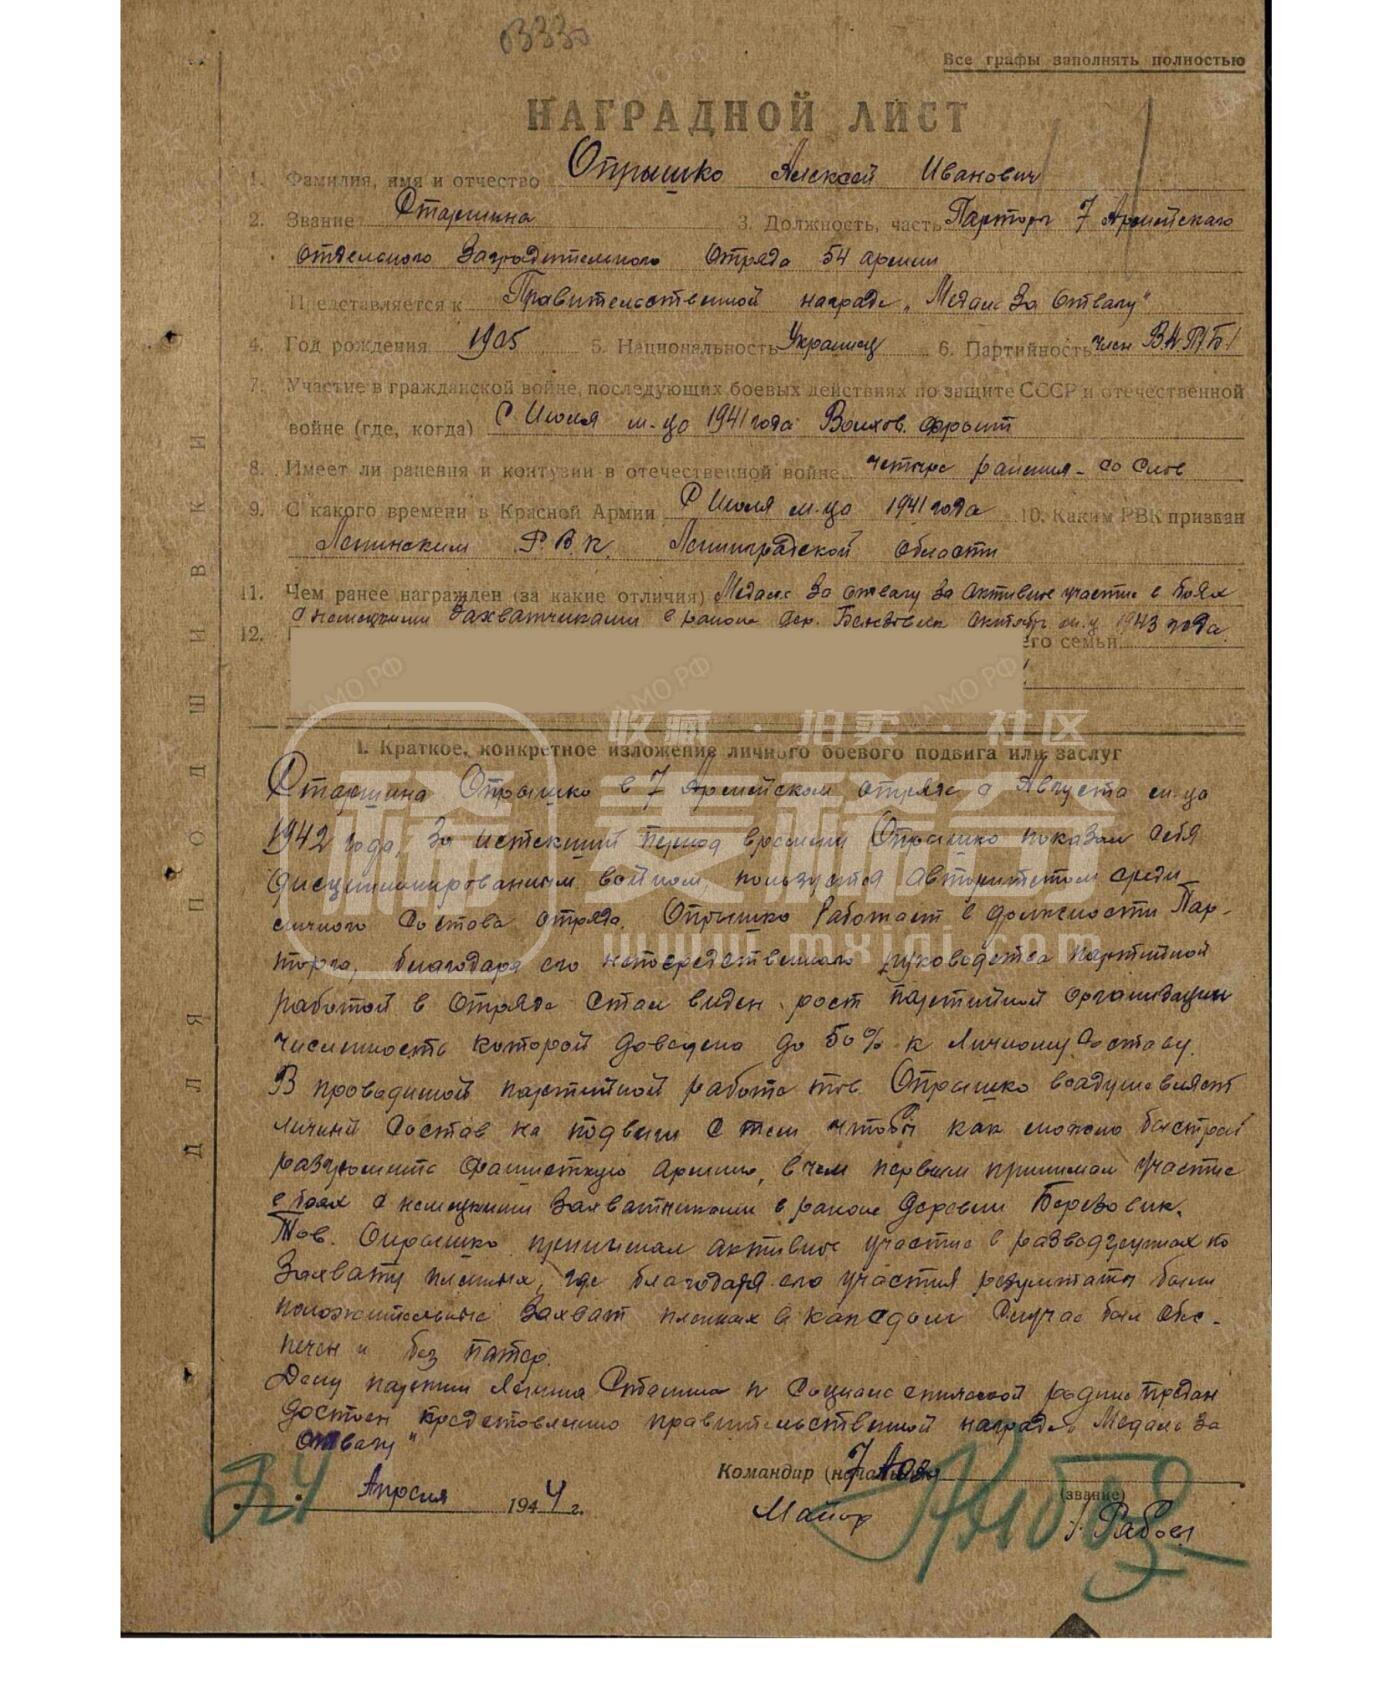 0333
Все графы заполнять полностью
НАГРАДНОЙ ЛИСТ
1. Фамилия, имя и отчество Опрышко Алексей Иванович
2. Звание Старшина 3. Должность, часть Парторг 7 Армейского
отдельного Заградительного Отряда 54 армии
Представляется к Правительственной награде „Медаль За Отвагу"
4. Год рождения 1905 5. Национальность Украинец 6. Партийность член ВКП/Б/
7. Участие в гражданской войне, последующих боевых действиях по защите СССР и отечественной
войне (где, когда) С Июля м-ца 1941 года Волхов. фронт
8. Имеет ли ранения и контузии в отечественной войне четыре ранения - со слов
9. С какого времени в Красной Армии С Июля м-ца 1941 года 10. Каким РВК призван
Ленинским Р.В.К. Ленинградской области
11. Чем ранее награжден (за какие отличия) Медаль За отвагу За активное участие в боях
с немецкими Захватчиками в районе октябрь м-ц 1943 года
12. его семьи
1. Краткое, конкретное изложение личного боевого подвига или заслуг
Старшина Опрышко в 7 Армейском отряде с Августа м-ца
1942 года, За истекший период времени Опрышко показал себя
дисциплинированным войном, пользуется авторитетом среди
личного Состава отряда. Опрышко Работает в должности Пар-
торга, благодаря его непосредственного руководства партийной
работой в Отряде стал виден рост партийной организации
численность которой доведена до 50% к личному Составу.
В проводимой партийной работе тов. Опрышко воодушевляет
личный Состав на подвиги с тем чтобы как можно быстрей
разгромить фашисткую армию, в чем первым принимал участие
в боях с немецкими Захватчиками в районе деревни Березовик.
Тов. Опрышко принимал активное участие в разведгрупах по
Захвату пленных, где благодаря его участия результаты были
положительные Захват пленных в каждом Случае был обес-
печен и без патер.
Делу партии Ленина Сталина и Социалистической родине предан
достоен представлению правительственной награде Медаль За
отвагу"
24 Апреля 1944 г.
Командир (начальник) 7
(звание)
Майор
ДЛЯ ПОДШИВКИ
ЦАМО.РФ
收藏 · 拍卖 · 社区
稀 麦稀奇
www.mxiqi.com